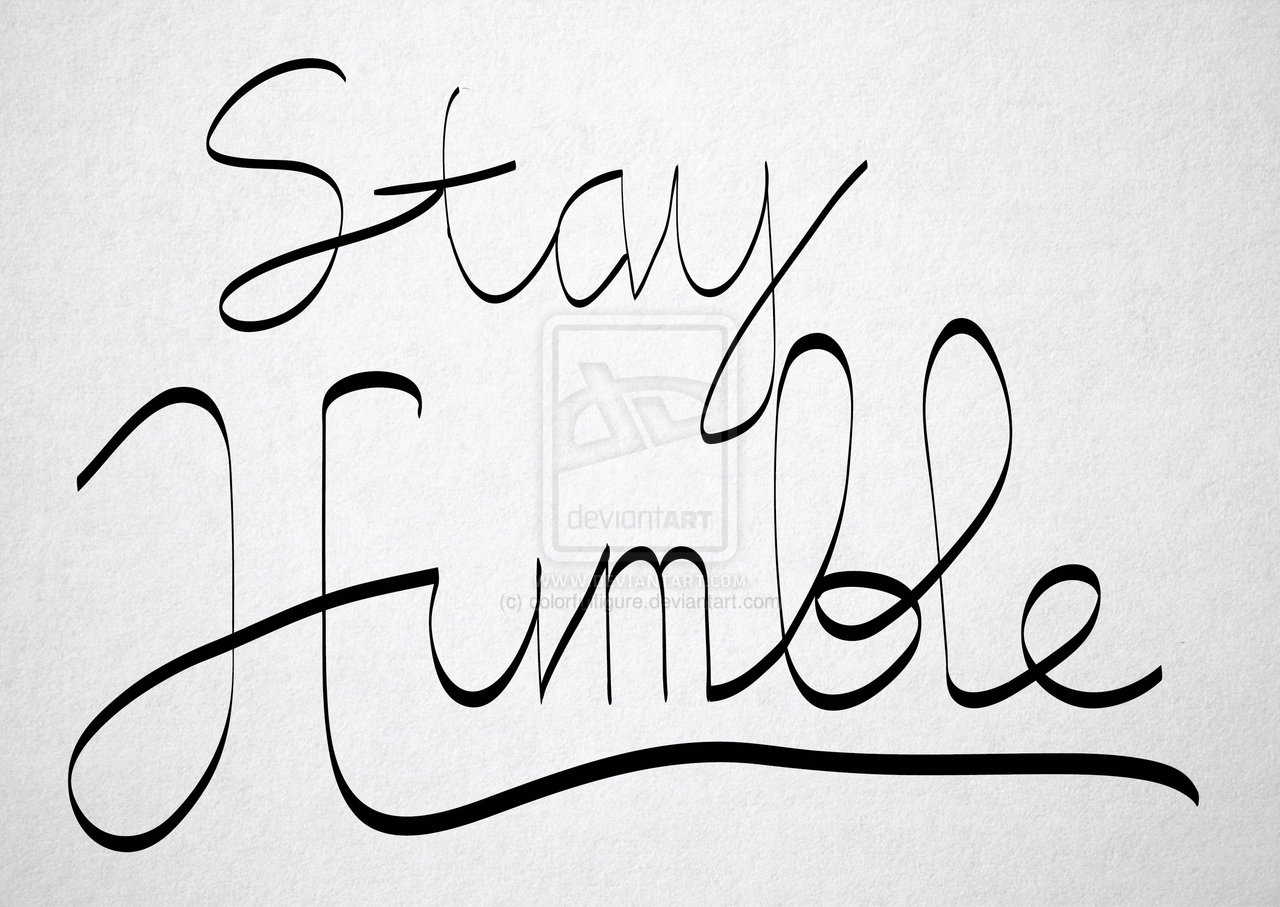 Stay
Humble
deviantART
WWW.DEVIANTART.COM
(c) colorfulfigure.deviantart.com